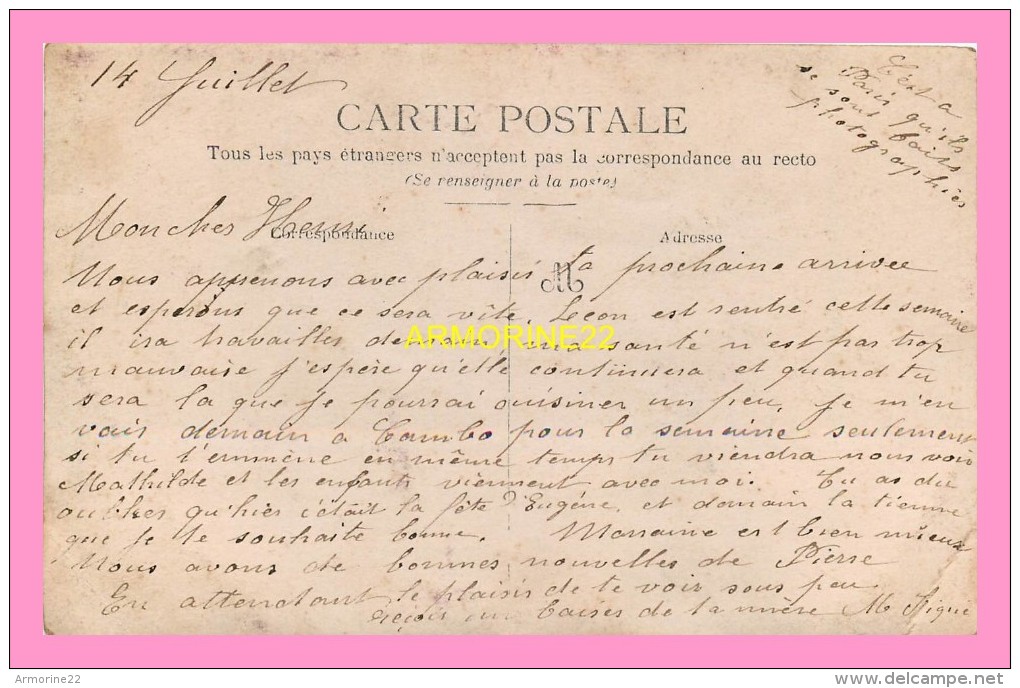 14 Juillet
C'est a
Paris qu'ils
se sont faits
photographiés
CARTE POSTALE
Tous les pays étrangers n'acceptent pas la correspondance au recto
(Se renseigner à la poste)
Mon cher Henri
Correspondance
Adresse
Nous apprenons avec plaisir ta prochaine arrivée
et esperons que ce sera vite. Leon est rentré cette semaine
il ira travailler demain, ma santé n'est pas trop
mauvaise j'espère qu'elle continuera et quand tu
sera la que je pourrai cuisiner un peu. Je m'en
vais demain a Cambo pour la semaine seulement
si tu t'emmène en même temps tu viendra nous voir
Mathilde et les enfants viennent avec moi. Tu as du
oublier qu'hier c'était la fête d'Eugène, et demain la tienne
que je te souhaite bonne. Marraine est bien mieux
Nous avons de bonnes nouvelles de Pierre
En attendant le plaisir de te voir sous peu
reçois un baiser de ta mère M.
ARMORINE22
Armorine22
www.delcampe.net